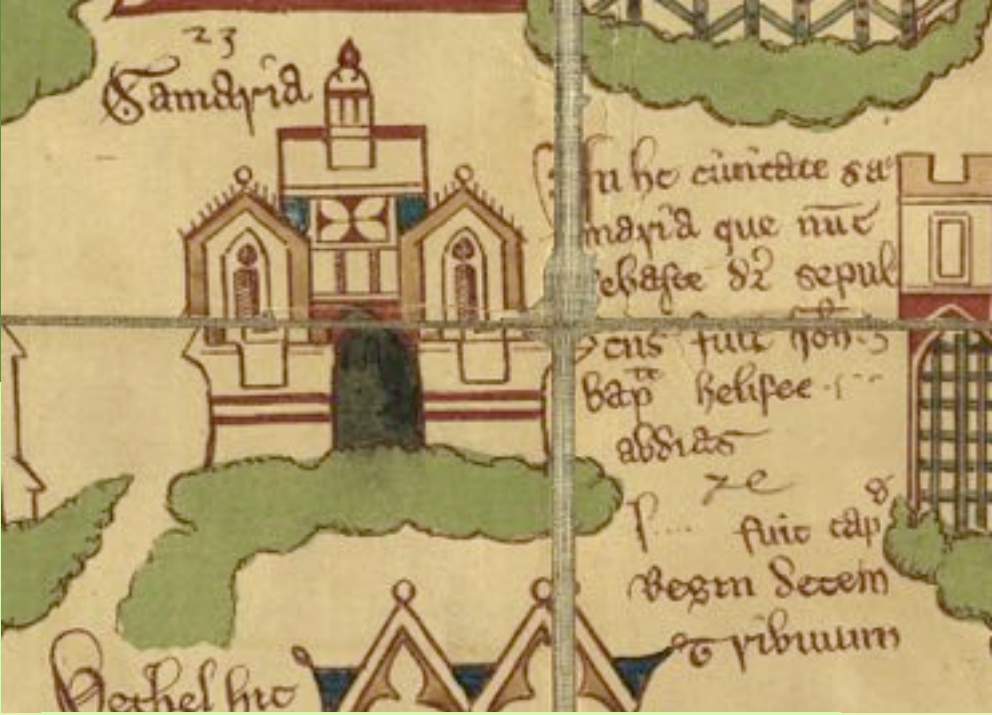 23
Samaria
In hc ciuitate sa
maria que nūc
sebaste dr sepul
fuit Joh
bap helisee
abdias
fuit cap
Regni decem
Tribuum
Bethel hic